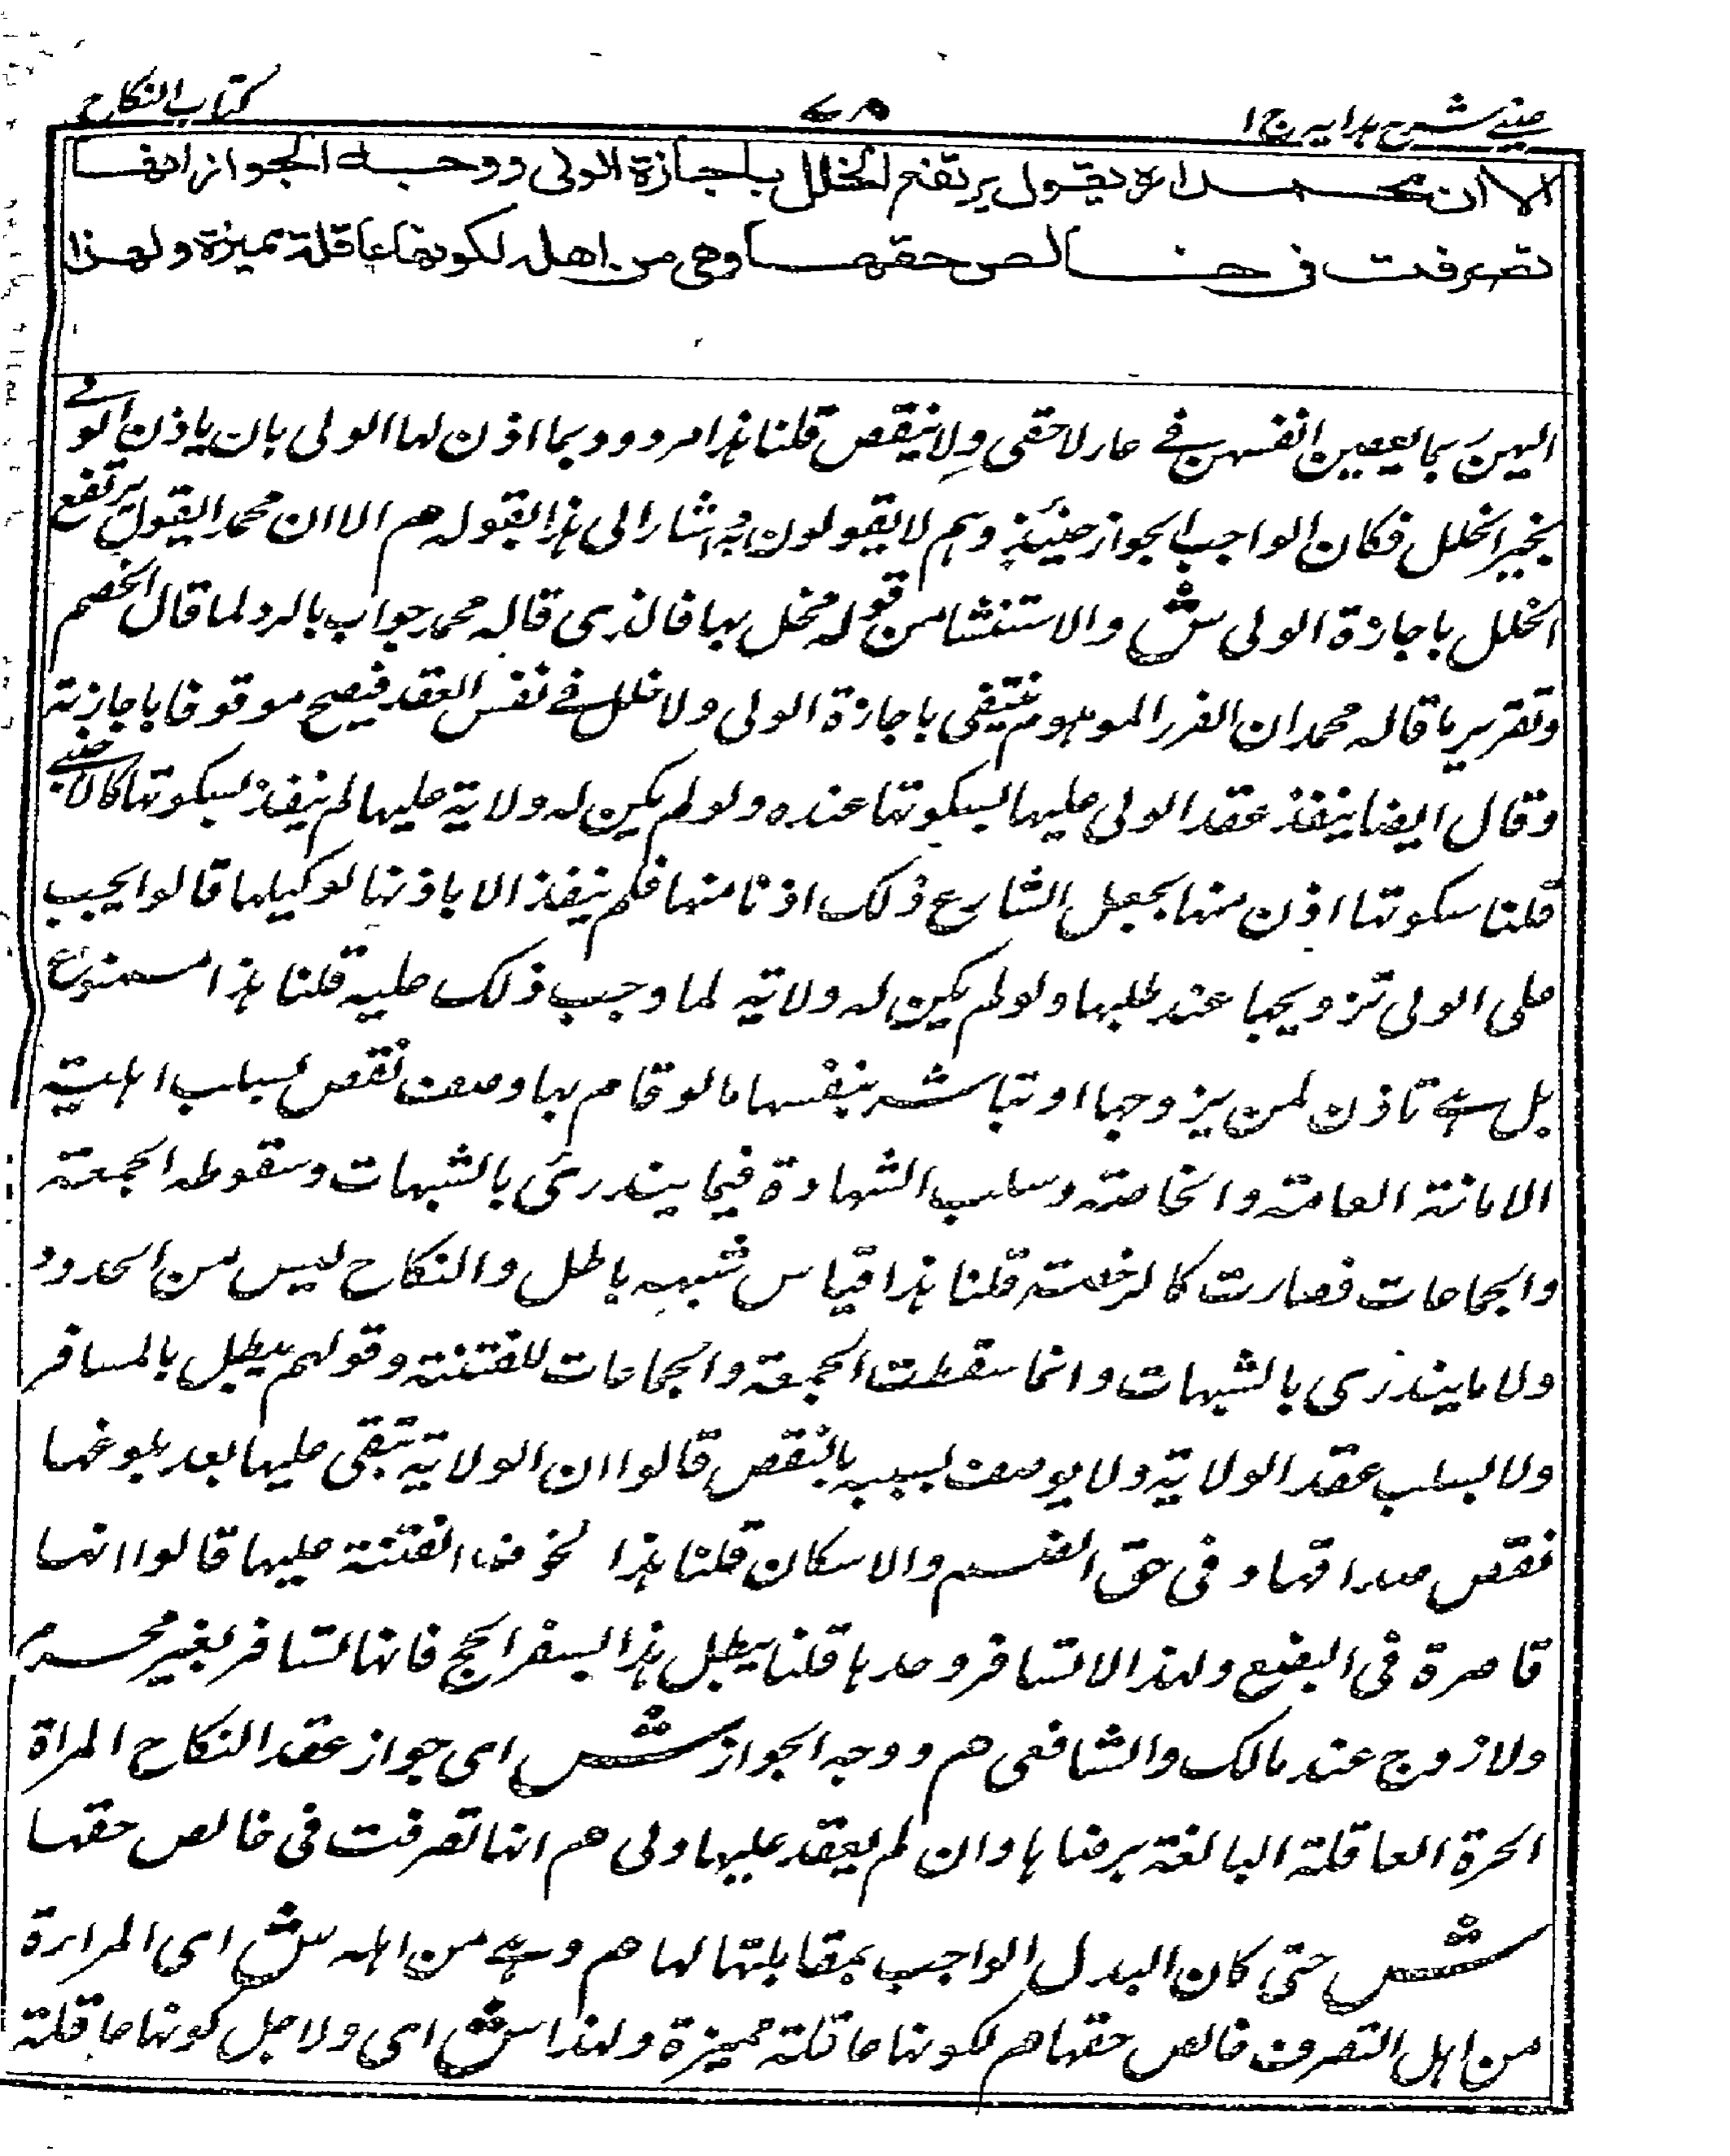 عينى شرح هدايه ج ١
كتاب النكاح
الا ان محمدا ره يقول يرتفع الخلل باجازة الولى ووجه الجواز انها
تصرفت فى خالص حقها وهى من اهله لكونها عاقلة مميزة ولهذا
اليهن بما يعصين انفسهن فى عار لاحقى ولا ينقص قلنا هذا مردود بما اذن لها الولى بان ياذن الولى
بخير الخلل فكان الواجب الجواز حينئذ وهم لا يقولون به اشار الى هذا بقوله هم الا ان محمدا يقول يرتفع
الخلل باجازة الولى ش والاستثنا من قوله مخل بها فالذى قاله محمد جواب بالرد لما قال الخصم
وتقرير ما قاله محمد ان الضرر الموهوم ينتفى باجازة الولى ولا خلل فى نفس العقد فيصح موقوفا باجازته
وقال ايضا ينفذ عقد الولى عليها بسكوتها عنده ولو لم يكن له ولاية عليها لم ينفذ بسكوتها كالاجنبى
قلنا سكوتها اذن منها بجعل الشارع ذلك اذنا منها فلم ينفذ الا باذنها لوكيلها قالوا يجب
على الولى تزويجها عند طلبها ولو لم يكن له ولاية لما وجب ذلك عليه قلنا هذا ممنوع
بل هى تاذن لمن يزوجها او تباشر بنفسها مالو قام بها وصف نقص لسلب اهلية
الامانة العامة والخاصة وسلب الشهادة فيما يندرى بالشبهات وسقوط الجمعة
والجماعات فصارت كالرخصة قلنا هذا قياس شبهه باطل والنكاح ليس من الحدود
ولا ما يندرى بالشبهات وانما سقطت الجمعة والجماعات للفتنة وقولهم يبطل بالمسافر
ولا لسلب عقد الولاية ولا يوصف بسببه بالنقص قالوا ان الولاية تبقى عليها بعد بلوغها
نقص صداقها وفى حق الفسـ والاسكان قلنا هذا لخوف الفتنة عليها قالوا انها
قاصرة فى البضع ولهذا لا تسافر وحدها قلنا يبطل هذا بسفر الحج فانها تسافر بغير محرم
ولا زوج عند مالك والشافعى هم ووجه الجواز ش اى جواز عقد النكاح المراة
الحرة العاقلة البالغة برضاها وان لم يعقد عليها ولى هم انها تصرفت فى خالص حقها
ش حتى كان البدل الواجب بمقابلتها لها هم وهى من اهله ش اى المرارة
من اهل التصرف خالص حقها هم لكونها عاقلة مميزة ولهذا ش اى ولاجل كونها عاقلة